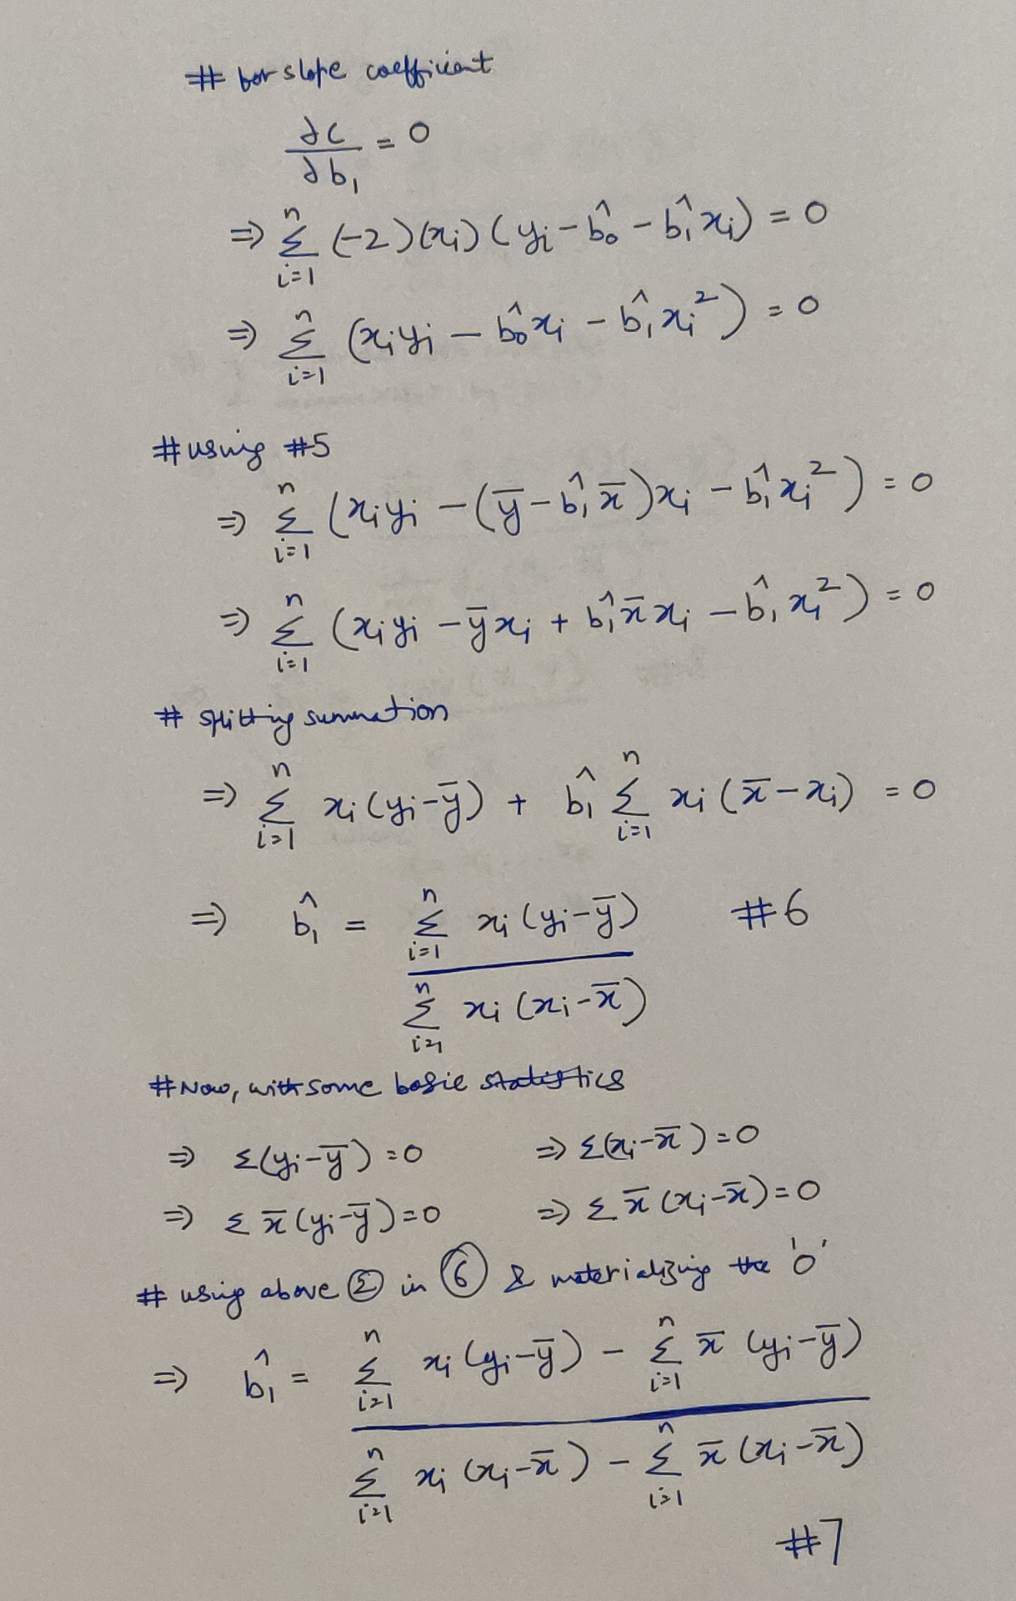 # for slope coefficient
∂C/∂b₁ = 0
⇒ Σᵢ₌₁ⁿ (-2)(xᵢ)(yᵢ - b̂₀ - b̂₁xᵢ) = 0
⇒ Σᵢ₌₁ⁿ (xᵢyᵢ - b̂₀xᵢ - b̂₁xᵢ²) = 0
# using #5
⇒ Σᵢ₌₁ⁿ (xᵢyᵢ - (ȳ - b̂₁x̄)xᵢ - b̂₁xᵢ²) = 0
⇒ Σᵢ₌₁ⁿ (xᵢyᵢ - ȳxᵢ + b̂₁x̄xᵢ - b̂₁xᵢ²) = 0
# splitting summation
⇒ Σᵢ₌₁ⁿ xᵢ(yᵢ-ȳ) + b̂₁ Σᵢ₌₁ⁿ xᵢ(x̄-xᵢ) = 0
⇒ b̂₁ = Σᵢ₌₁ⁿ xᵢ(yᵢ-ȳ) / Σᵢ₌₁ⁿ xᵢ(xᵢ-x̄) #6
# Now, with some basic statistics
⇒ Σ(yᵢ-ȳ) = 0 ⇒ Σ(xᵢ-x̄) = 0
⇒ Σ x̄(yᵢ-ȳ) = 0 ⇒ Σ x̄(xᵢ-x̄) = 0
# using above Ⓢ in ⑥ & materializing the '0'
⇒ b̂₁ = Σᵢ₌₁ⁿ xᵢ(yᵢ-ȳ) - Σᵢ₌₁ⁿ x̄(yᵢ-ȳ) / Σᵢ₌₁ⁿ xᵢ(xᵢ-x̄) - Σᵢ₌₁ⁿ x̄(xᵢ-x̄)
#7